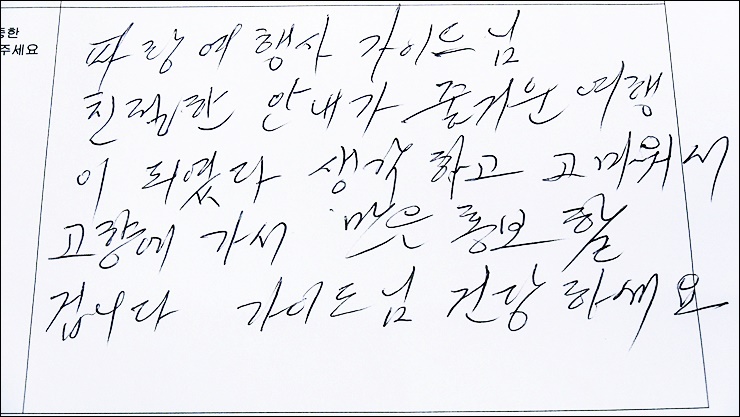 중한
주세요
파랑여행사 가이드님
친절한 안내가 즐거운 여행
이 되었다 생각하고 고마워서
고향에 가서 많은 홍보 할
겁니다 가이드님 건강하세요